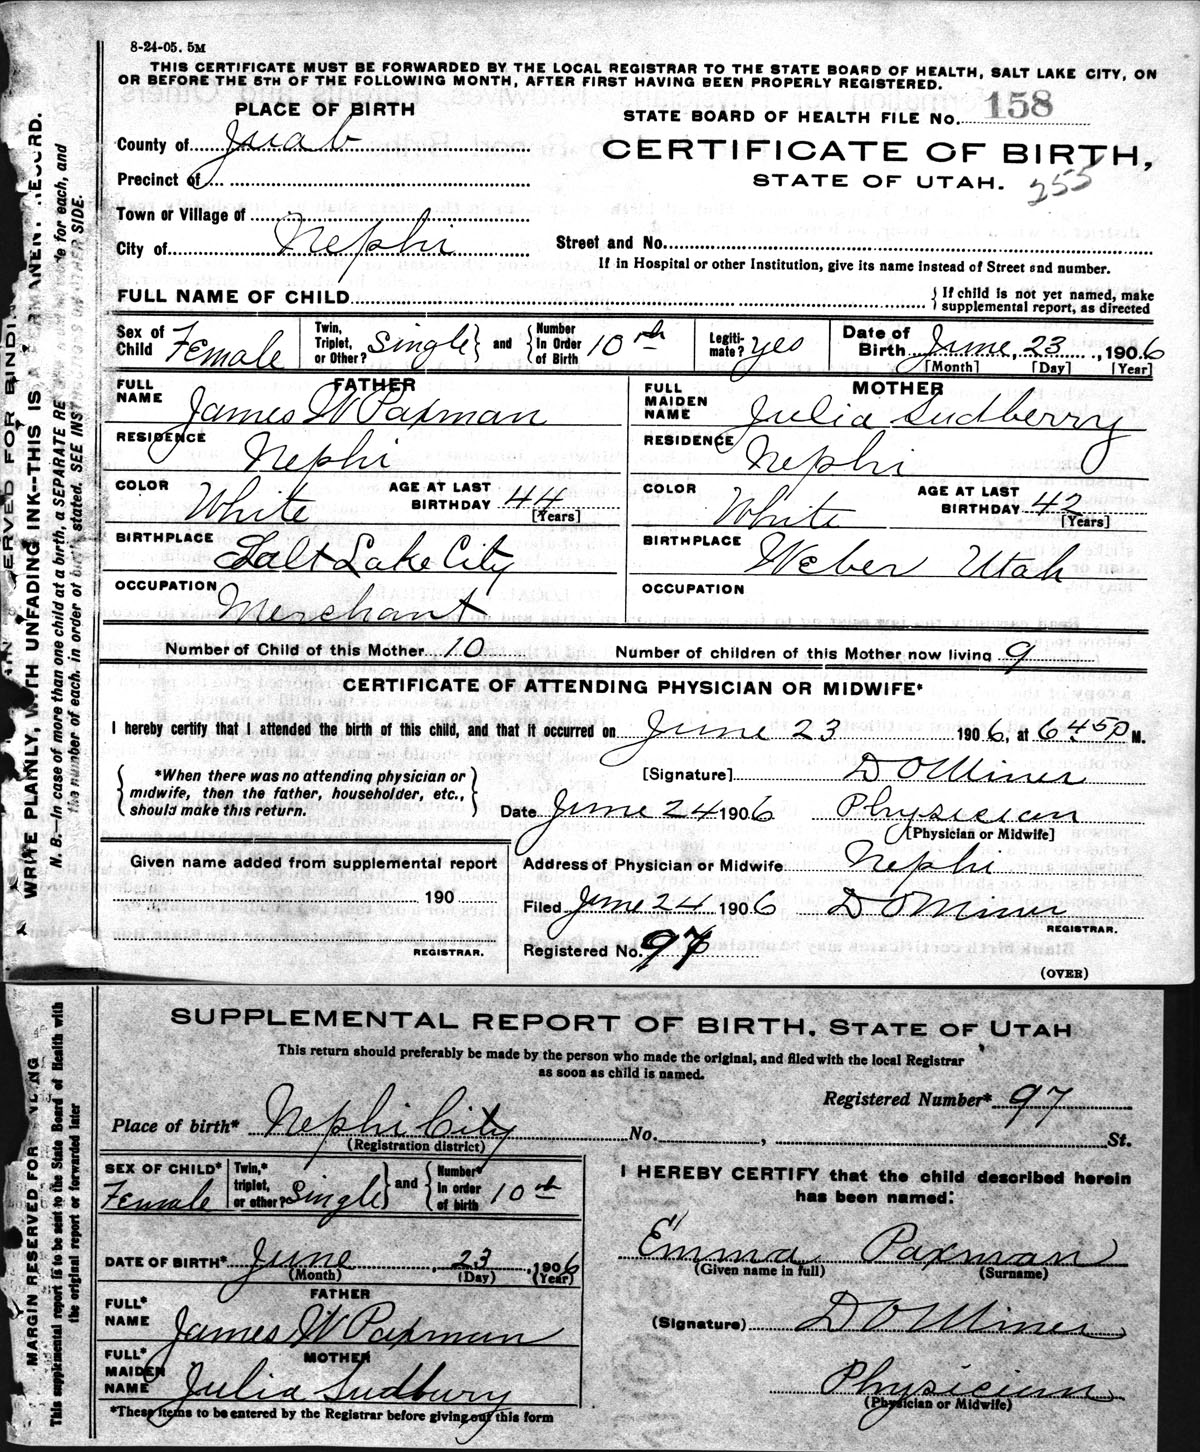 8-24-05. 5M
THIS CERTIFICATE MUST BE FORWARDED BY THE LOCAL REGISTRAR TO THE STATE BOARD OF HEALTH, SALT LAKE CITY, ON
OR BEFORE THE 5TH OF THE FOLLOWING MONTH, AFTER FIRST HAVING BEEN PROPERLY REGISTERED.
PLACE OF BIRTH
STATE BOARD OF HEALTH FILE No. 158
County of Juab
CERTIFICATE OF BIRTH,
Precinct of
STATE OF UTAH. 255
Town or Village of
City of Nephi
Street and No.
If in Hospital or other Institution, give its name instead of Street and number.
FULL NAME OF CHILD } If child is not yet named, make supplemental report, as directed
Sex of Child Female Twin, Triplet, or Other? Single } and { Number in Order of Birth 10th Legitimate? yes Date of Birth June, 23, 1906
[Month] [Day] [Year]
FATHER
FULL NAME James W Paxman
RESIDENCE Nephi
COLOR White AGE AT LAST BIRTHDAY 44
[Years]
BIRTHPLACE Salt Lake City
OCCUPATION Merchant
MOTHER
FULL MAIDEN NAME Julia Sudberry
RESIDENCE Nephi
COLOR White AGE AT LAST BIRTHDAY 42
[Years]
BIRTHPLACE Weber Utah
OCCUPATION
Number of Child of this Mother 10 Number of children of this Mother now living 9
CERTIFICATE OF ATTENDING PHYSICIAN OR MIDWIFE*
I hereby certify that I attended the birth of this child, and that it occurred on June 23 1906, at 6 45 P M.
{ *When there was no attending physician or
midwife, then the father, householder, etc.,
should make this return. }
[Signature] D O Miner
Date June 24 1906 Physician
[Physician or Midwife]
Given name added from supplemental report
190
REGISTRAR.
Address of Physician or Midwife Nephi
Filed June 24 1906 D O Miner
REGISTRAR.
Registered No. 97
(OVER)
WRITE PLAINLY, WITH UNFADING INK--THIS IS A PERMANENT RECORD.
N. B.--In case of more than one child at a birth, a SEPARATE RE made for each, and
the number of each, in order of birth, stated. SEE INSTRUCTIONS ON OTHER SIDE.
SUPPLEMENTAL REPORT OF BIRTH, STATE OF UTAH
This return should preferably be made by the person who made the original, and filed with the local Registrar
as soon as child is named.
Registered Number* 97
Place of birth* Nephi City No. , St.
(Registration district)
SEX OF CHILD* Female Twin,* triplet, or other? Single } and { Number* in order of birth 10th
DATE OF BIRTH* June, 23, 1906
(Month) (Day) (Year)
FATHER
FULL* NAME James W Paxman
MOTHER
FULL* MAIDEN NAME Julia Sudbury
*These items to be entered by the Registrar before giving out this form
I HEREBY CERTIFY that the child described herein
has been named:
Emma Paxman
(Given name in full) (Surname)
(Signature) D O Miner
Physician
(Physician or Midwife)
MARGIN RESERVED FOR BINDING
This supplemental report is to be sent to the State Board of Health with
the original report or forwarded later